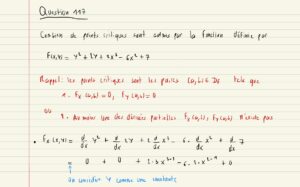 Question 117
Combien de points critiques sont admis par la fonction définie par
F(x,y) = y² + 2y + 2x³ - 6x² + 7
Rappel: les points critiques sont les paires (a,b) ∈ Df telle que
1. Fx(a,b) = 0, Fy(a,b) = 0
ou
2. Au moins une des dérivées partielles Fx(a,b), Fy(a,b) n'existe pas
• Fx(x,y) = d/dx y² + d/dx 2y + 2 d/dx x³ - 6 · d/dx x² + d/dx 7
= 0 + 0 + 2·3 x³⁻¹ - 6·2 x²⁻¹ + 0
on considère y comme une constante